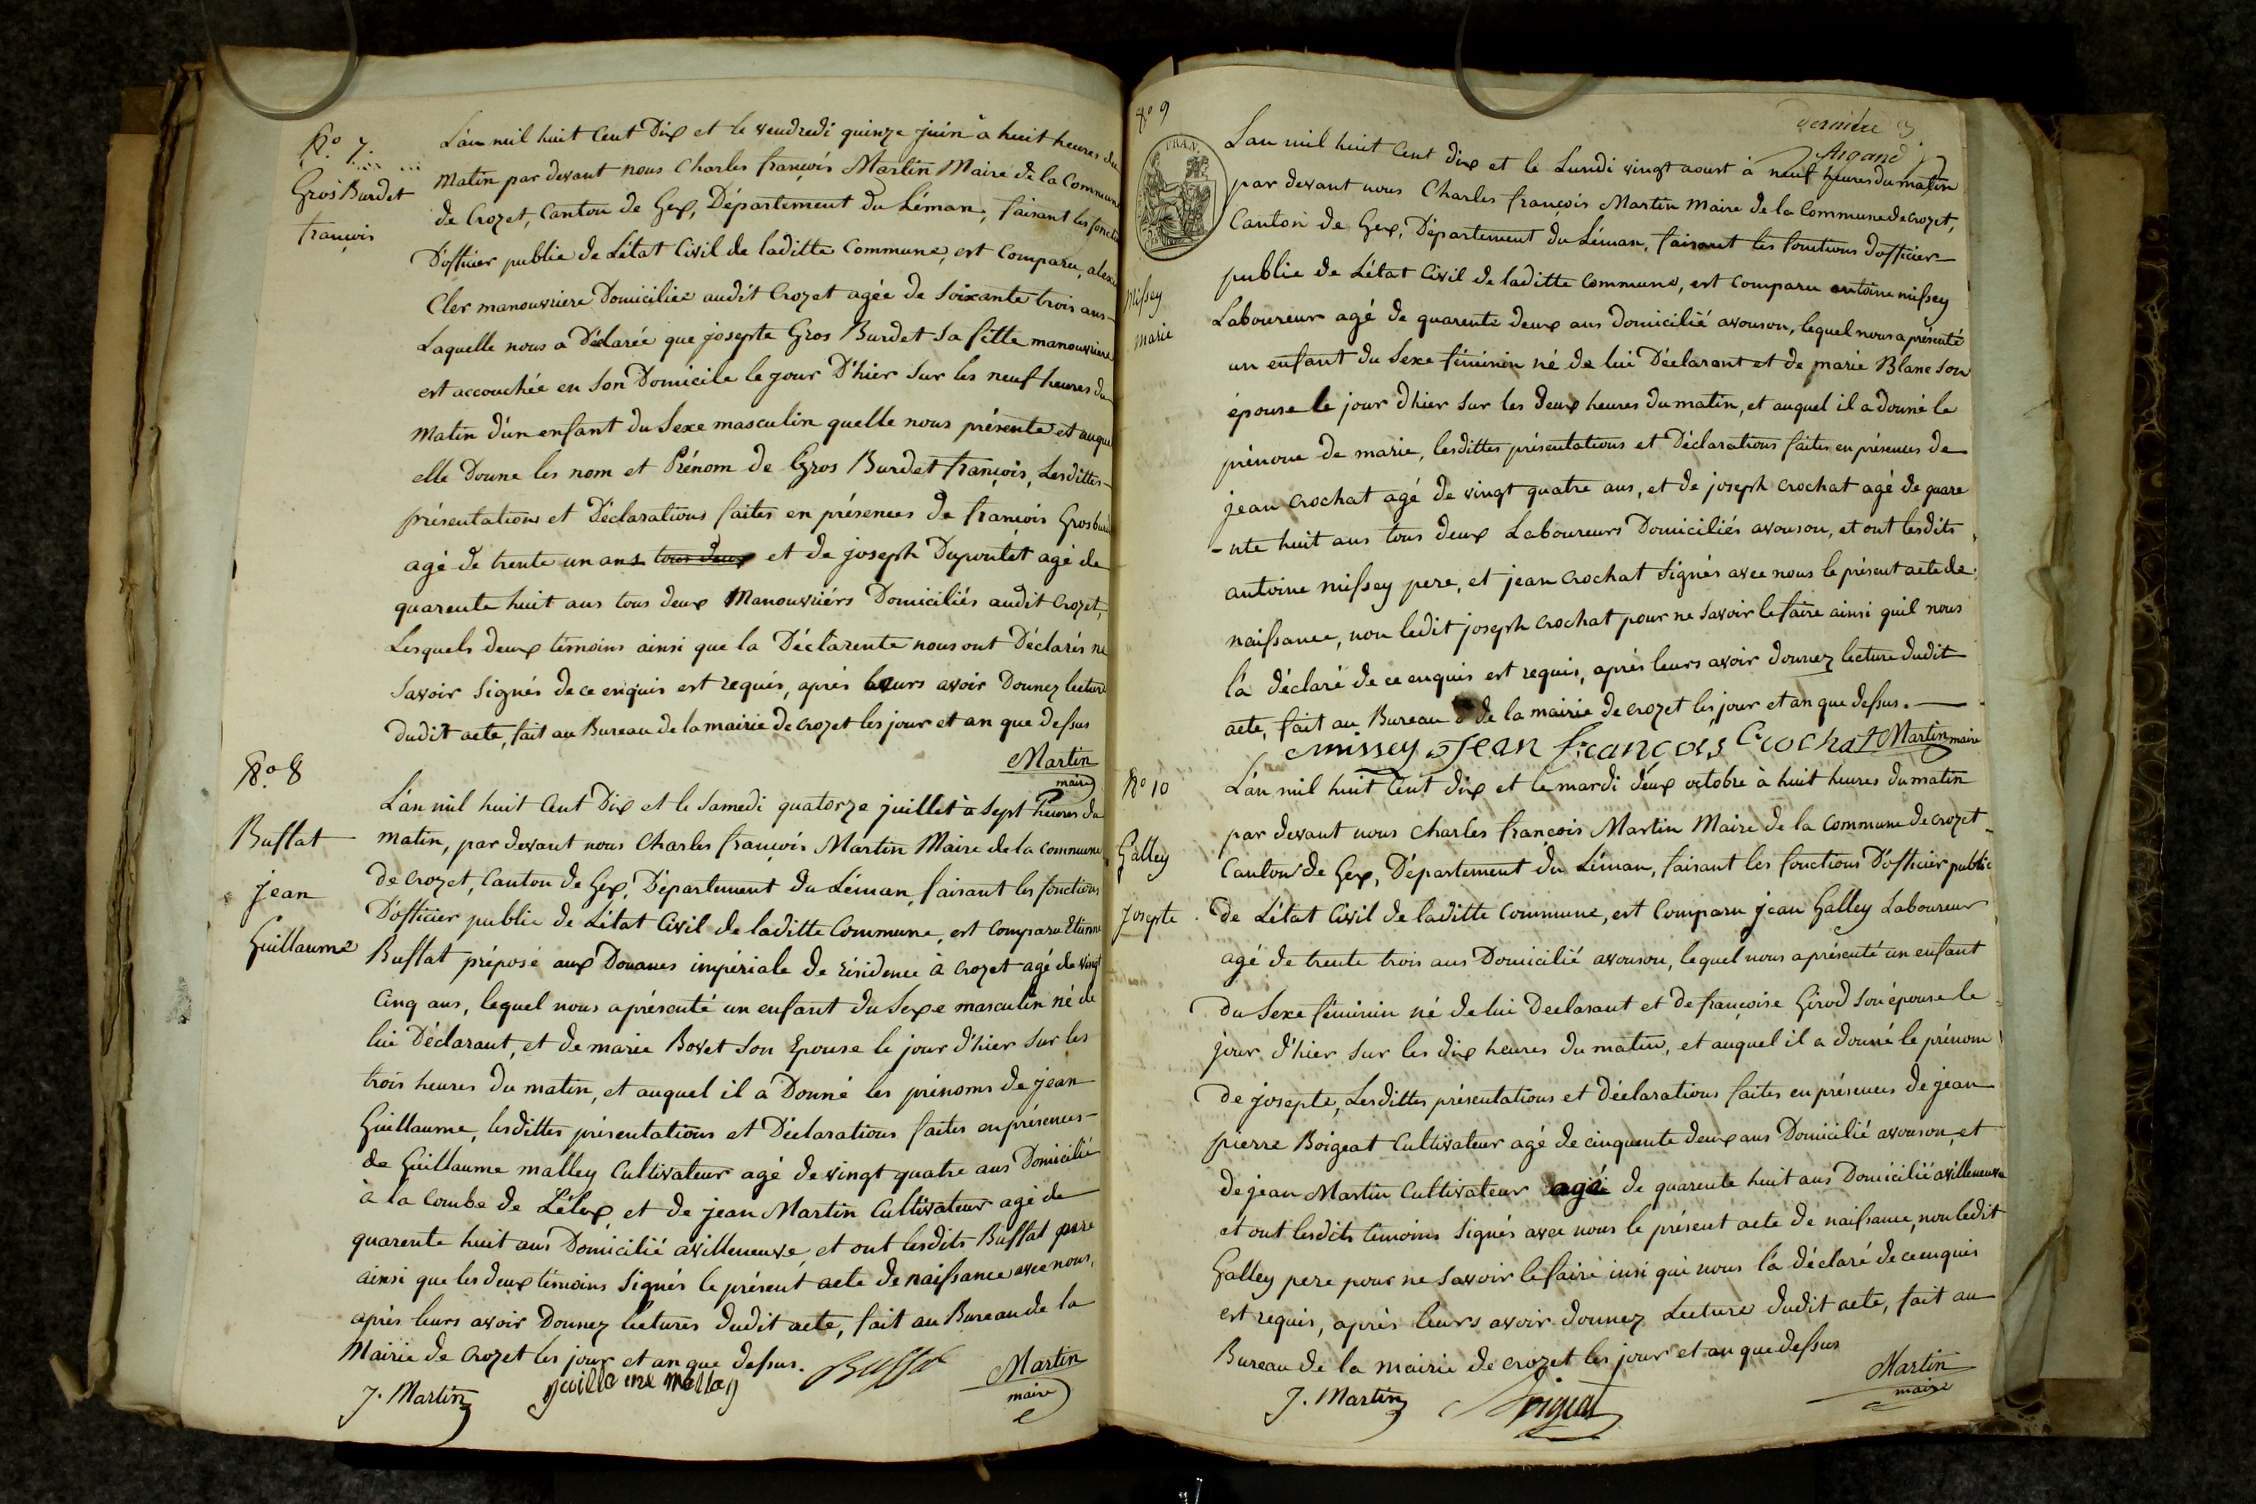 No. 7.
Gros Burdet
françois
L'an mil huit Cent Dix et le vendredi quinze juin à huit heures du
Matin par devant nous Charles françois Martin Maire de la Commune
de Crozet, Canton de Gex, Département du Léman, faisant les fonctio
D'officier public de L'état Civil de laditte Commune, est Comparu,
Cler manouvriere Domiciliée audit Crozet agée de Soixante trois ans
Laquelle nous a Déclarée que josepte Gros Burdet Sa fille manouvriere
est accouchée en Son Domicile le jour D'hier Sur les neuf heures du
Matin d'un enfant du Sexe masculin quelle nous présente et auque
elle Donne les nom et Prénom de Gros Burdet françois, Lesdittes
présentations et Déclarations faites en présences de françois Grosburd
agé de trente un ans tous deux et de joseph Dupontét agé de
quarente huit ans tous deux Manouvriérs Domiciliés audit Crozet,
Lesquels deux temoins ainsi que la Déclarente nous ont Déclarés ne
Savoir Signés de ce enquis est requis, après leurs avoir Donnez lecture
dudit acte, fait au Bureau de la mairie de crozet les jour et an que dessus
Martin
maire
No. 8
Buffat
jean
Guillaume
L'an mil huit Cent Dix et le Samedi quatorze juillet à Sept heures du
matin, par devant nous Charles françois Martin Maire de la commune
de crozet, Canton de Gex, Département du Léman, faisant les fonctions
D'officier public de L'état Civil de laditte Commune, est Comparu Etienne
Buffat préposé aux Douanes impériale de résidence à Crozet agé de vingt
Cinq ans, lequel nous a présenté un enfant du Sexe masculin né de
lui Déclarant, et de marie Bovet Son Epouse le jour d'hier Sur les
trois heures du matin, et auquel il a Donné les prénoms de jean
Guillaume, lesdittes présentations et Déclarations faites en présences
de Guillaume malley Cultivateur agé de vingt quatre ans Domicilié
à la Combe de Lélex et de jean Martin Cultivateur agé de
quarente huit ans Domicilié avilleneuve et ont lesdits Buffat pere
ainsi que les deux témoins Signés le présent acte de naissance avec nous,
après leurs avoir Donnez lectures dudit acte, fait au Bureau de la
Mairie de Crozet les jour et an que dessus.
Buffat
Martin
maire
J. Martin
No 9
derniere
Argand
FRAN.
Missey
marie
L'an mil huit Cent dix et le Lundi vingt aoust à neuf heures du matin
par devant nous Charles françois Martin Maire de la Commune de Crozet,
Canton de Gex, Département du Léman, faisant les fonctions d'officier
public de L'état Civil de laditte Commune, est Comparu antoine missey
Laboureur agé de quarente deux ans Domicilié avouson, lequel nous a présenté
un enfant du Sexe féminin né de lui Déclarant et de marie Blanc Son
épouse le jour d'hier Sur les deux heures du matin, et auquel il a donné le
prénom de marie, lesdittes présentations et Déclarations faites en présences de
jean Crochat agé de vingt quatre ans, et de joseph Crochat agé de quare
-nte huit ans tous deux Laboureurs Domiciliés avouson, et ont lesdits
antoine missey pere, et jean Crochat Signés avec nous le présent acte de
naissance, non ledit joseph Crochat pour ne Savoir le faire ainsi quil nous
l'a déclaré de ce enquis est requis, après leurs avoir donnez lecture dudit
acte, fait au Bureau de la mairie de crozet les jour et an que dessus.
missey Jean françois Crochat Martin maire
No 10
Galley
Josepte
L'an mil huit Cent dix et le mardi deux octobre à huit heures du matin
par devant nous Charles françois Martin Maire de la Commune de crozet
Canton de Gex, Département du Léman, faisant les fonctions D'officier public
de L'état Civil de laditte Commune, est Comparu jean Galley Laboureur
agé de trente trois ans Domicilié avouson, lequel nous a présenté un enfant
du Sexe féminin né de lui Declarant et de françoise Girod Son épouse le
jour d'hier Sur les dix heures du matin, et auquel il a donné le prénom
de josepte, Lesdittes présentations et déclarations faites en présences de jean
pierre Boigeat Cultivateur agé de cinquente deux ans Domicilié avouson, et
de jean Martin Cultivateur agé de quarente huit ans Domicilié avilleneuve
et ont lesdits témoins Signés avec nous le présent acte de naissance, non ledit
Galley pere pour ne Savoir le faire insi qui nous l'a déclaré de ce enquis
est requis, après leurs avoir donnez Lecture dudit acte, fait au
Bureau de la mairie de crozet les jour et an que dessus
Martin
maire
J. Martin